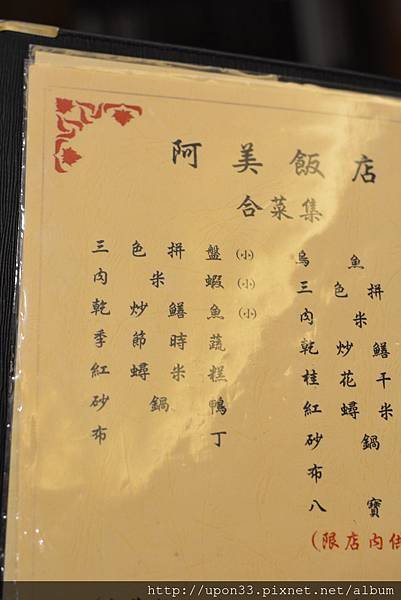 阿美飯店
合菜集
三色拼盤(小)
肉米蝦(小)
乾炒鱔魚(小)
季節時蔬
紅蟳米糕
砂鍋鴨
布丁
烏魚
三色拼
肉米
乾炒鱔
桂花干
紅蟳米
砂鍋
布
八寶
(限店內供
http://upon33.pixnet.net/album